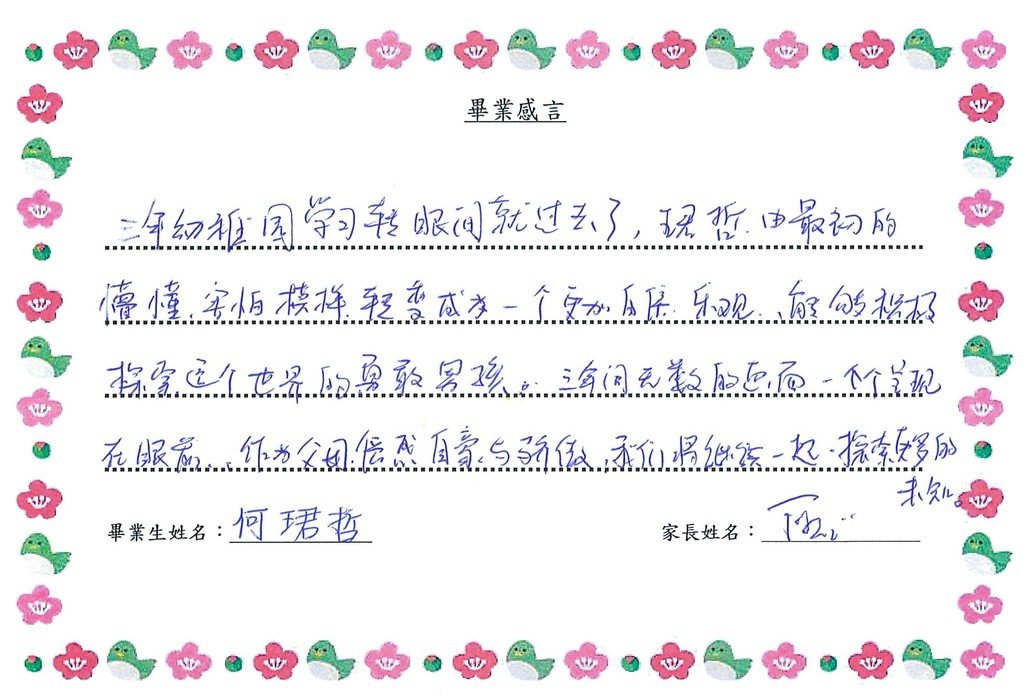 畢業感言
三年幼稚园学习转眼间就过去了，珺哲由最初的
懵懂、害怕模样转变成为一个更加自信、乐观、能够积极
探索这个世界的勇敢男孩。三年间无数的画面一下个呈现
在眼前，作为父母倍感自豪与骄傲，我们将继续一起探索更多的
未知。
畢業生姓名：何珺哲
家長姓名：